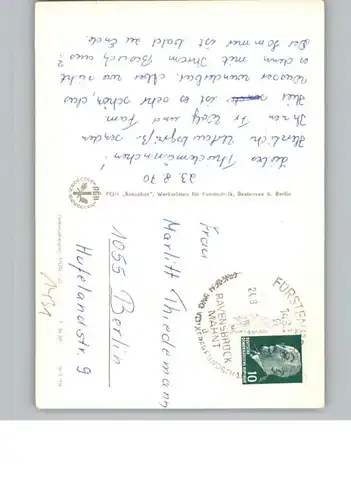 23. 8. 70
Liebes Thiedemännchen!
Herzliche Urlaubsgrüße senden
Ihnen Fr. Wolf und Fam.
Hier ist es sehr schön, das
Wasser wunderbar. Aber wo sieht
es denn mit Ihrem Besuch aus?
Der Sommer ist bald zu Ende.
PGH
PGH "Rotophot", Werkstätten für Fototechnik, Bestensee b. Berlin
Frau
Marlitt Thiedemann
1055 Berlin
Hufelandstr. 9
1431
FÜRSTENBERG
24.8
RAVENSBRÜCK
MAHNT
DEUTSCHE
DEMOKRATISCHE REPUBLIK
10